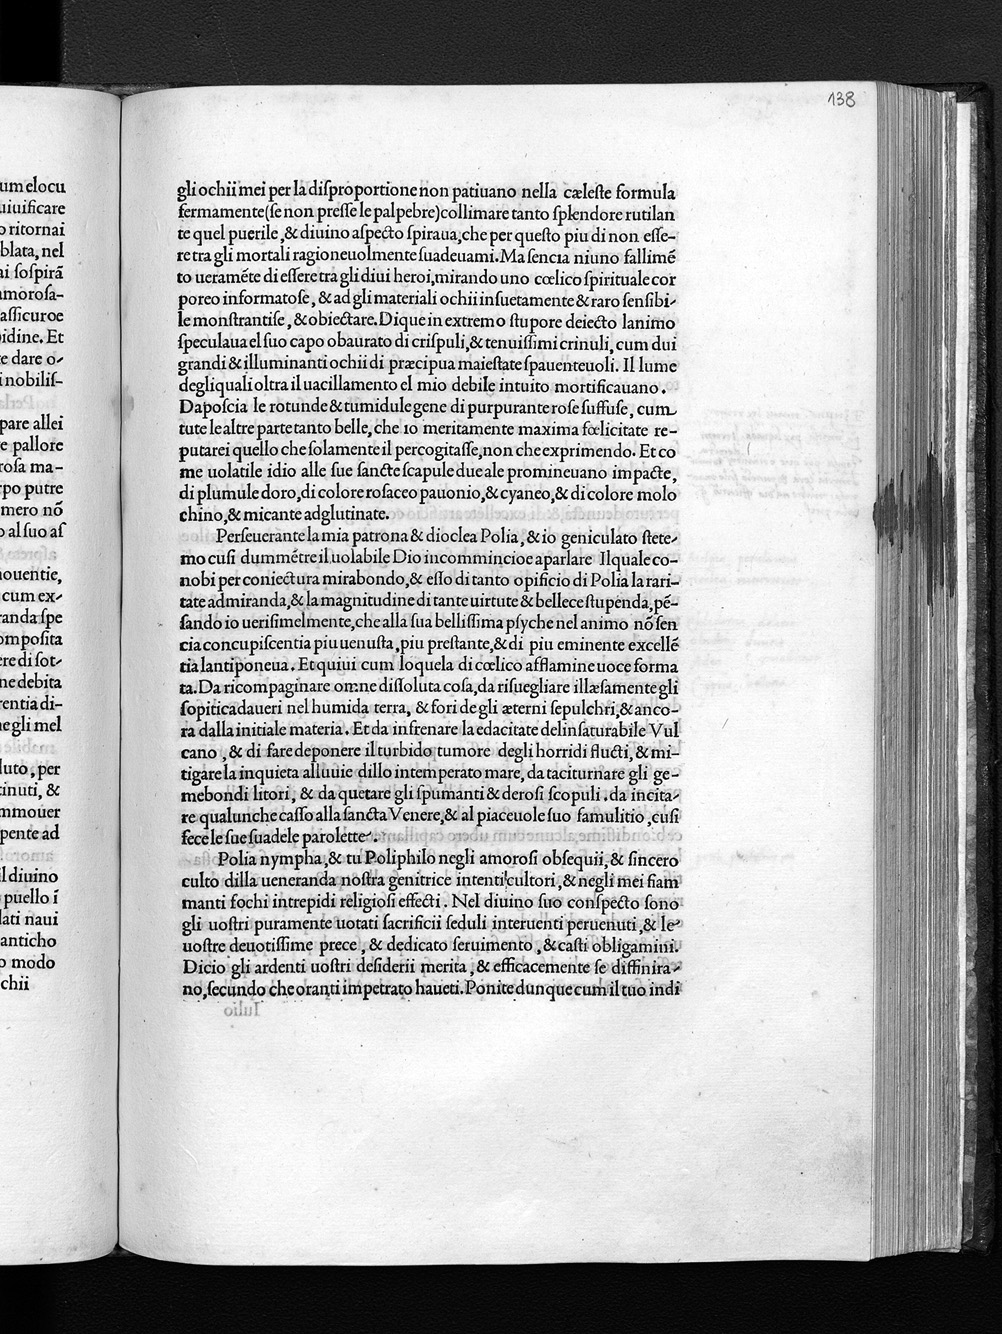 138
um elocu
uiuificare
o ritornai
blata, nel
ai ſoſpirã
amoroſa-
aſſicuroe
idine. Et
e dare o-
i nobiliſ-
pare allei
e pallore
roſa ma-
rpo putre
mero nõ
o al ſuo aſ
nouentie,
cum ex-
randa ſpe
ompoſita
ere di ſot-
ne debita
rentia di-
ne gli mel
luto, per
tinuti, &
mmouer
pente ad
il diuino
puello ĩ
lati naui
anticho
o modo
chii
gli ochii mei per la diſproportione non patiuano nella cæleſte formula
fermamente (ſe non preſſe le palpebre) collimare tanto ſplendore rutilan
te quel puerile, & diuino aſpecto ſpiraua, che per queſto piu di non eſſe-
re tra gli mortali ragioneuolmente ſuadeuami. Ma ſencia niuno fallimẽ
to ueramẽte di eſſere tra gli diui heroi, mirando uno cœlico ſpirituale cor
poreo informatoſe, & ad gli materiali ochii inſuetamente & raro ſenſibi-
le monſtrantiſe, & obiectare. Dique in extremo ſtupore deiecto lanimo
ſpeculaua el ſuo capo obaurato di criſpuli, & tenuiſſimi crinuli, cum dui
grandi & illuminanti ochii di præcipua maieſtate ſpauenteuoli. Il lume
degli quali oltra il uacillamento el mio debile intuito mortificauano.
Dapoſcia le rotunde & tumidule gene di purpurante roſe ſuffuſe, cum
tute le altre parte tanto belle, che io meritamente maxima fœlicitate re-
putarei quello che ſolamente il percogitaſſe, non che exprimendo. Et co
me uolatile idio alle ſue ſancte ſcapule due ale promineuano impacte,
di plumule doro, di colore roſaceo pauonio, & cyaneo, & di colore molo
chino, & micante adglutinate.
Perſeuerante la mia patrona & dioclea Polia, & io geniculato ſtete-
mo cuſi dummẽtre il uolabile Dio incommincioe aparlare Il quale co-
nobi per coniectura mirabondo, & eſſo di tanto opificio di Polia la rari-
tate admiranda, & la magnitudine di tante uirtute & bellece ſtupenda, pẽ-
ſando io ueriſimelmente, che alla ſua belliſſima pſyche nel animo nõ ſen
cia concupiſcentia piu uenuſta, piu preſtante, & di piu eminente excellẽ
tia lantiponeua. Et quiui cum loquela di cœlico afflamine uoce forma
ta. Da ricompaginare omne diſſoluta coſa, da riſuegliare illæſamente gli
ſopitica daueri nel humida terra, & fori degli æterni ſepulchri, & anco-
ra dalla initiale materia. Et da infrenare la edacitate delinſaturabile Vul
cano, & di fare deponere il turbido tumore degli horridi fluctì, & mi-
tigare la inquieta alluuie dillo intemperato mare, da taciturnare gli ge-
mebondi litori, & da quetare gli ſpumanti & deroſi ſcopuli. da incita-
re qualunche caſſo alla ſancta Venere, & al piaceuole ſuo famulitio, cuſi
fece le ſue ſuadele parolette.
Polia nympha, & tu Poliphilo negli amoroſi obſequii, & ſincero
culto dilla ueneranda noſtra genitrice intenti cultori, & negli mei fiam
manti fochi intrepidi religioſi effecti. Nel diuino ſuo conſpecto ſono
gli uoſtri puramente uotati ſacrificii ſeduli interuenti peruenuti, & le
uoſtre deuotiſſime prece, & dedicato ſeruimento, & caſti obligamini.
Dicio gli ardenti uoſtri deſiderii merita, & efficacemente ſe diffinira-
no, ſecundo che oranti impetrato haueti. Ponite dunque cum il tuo indi